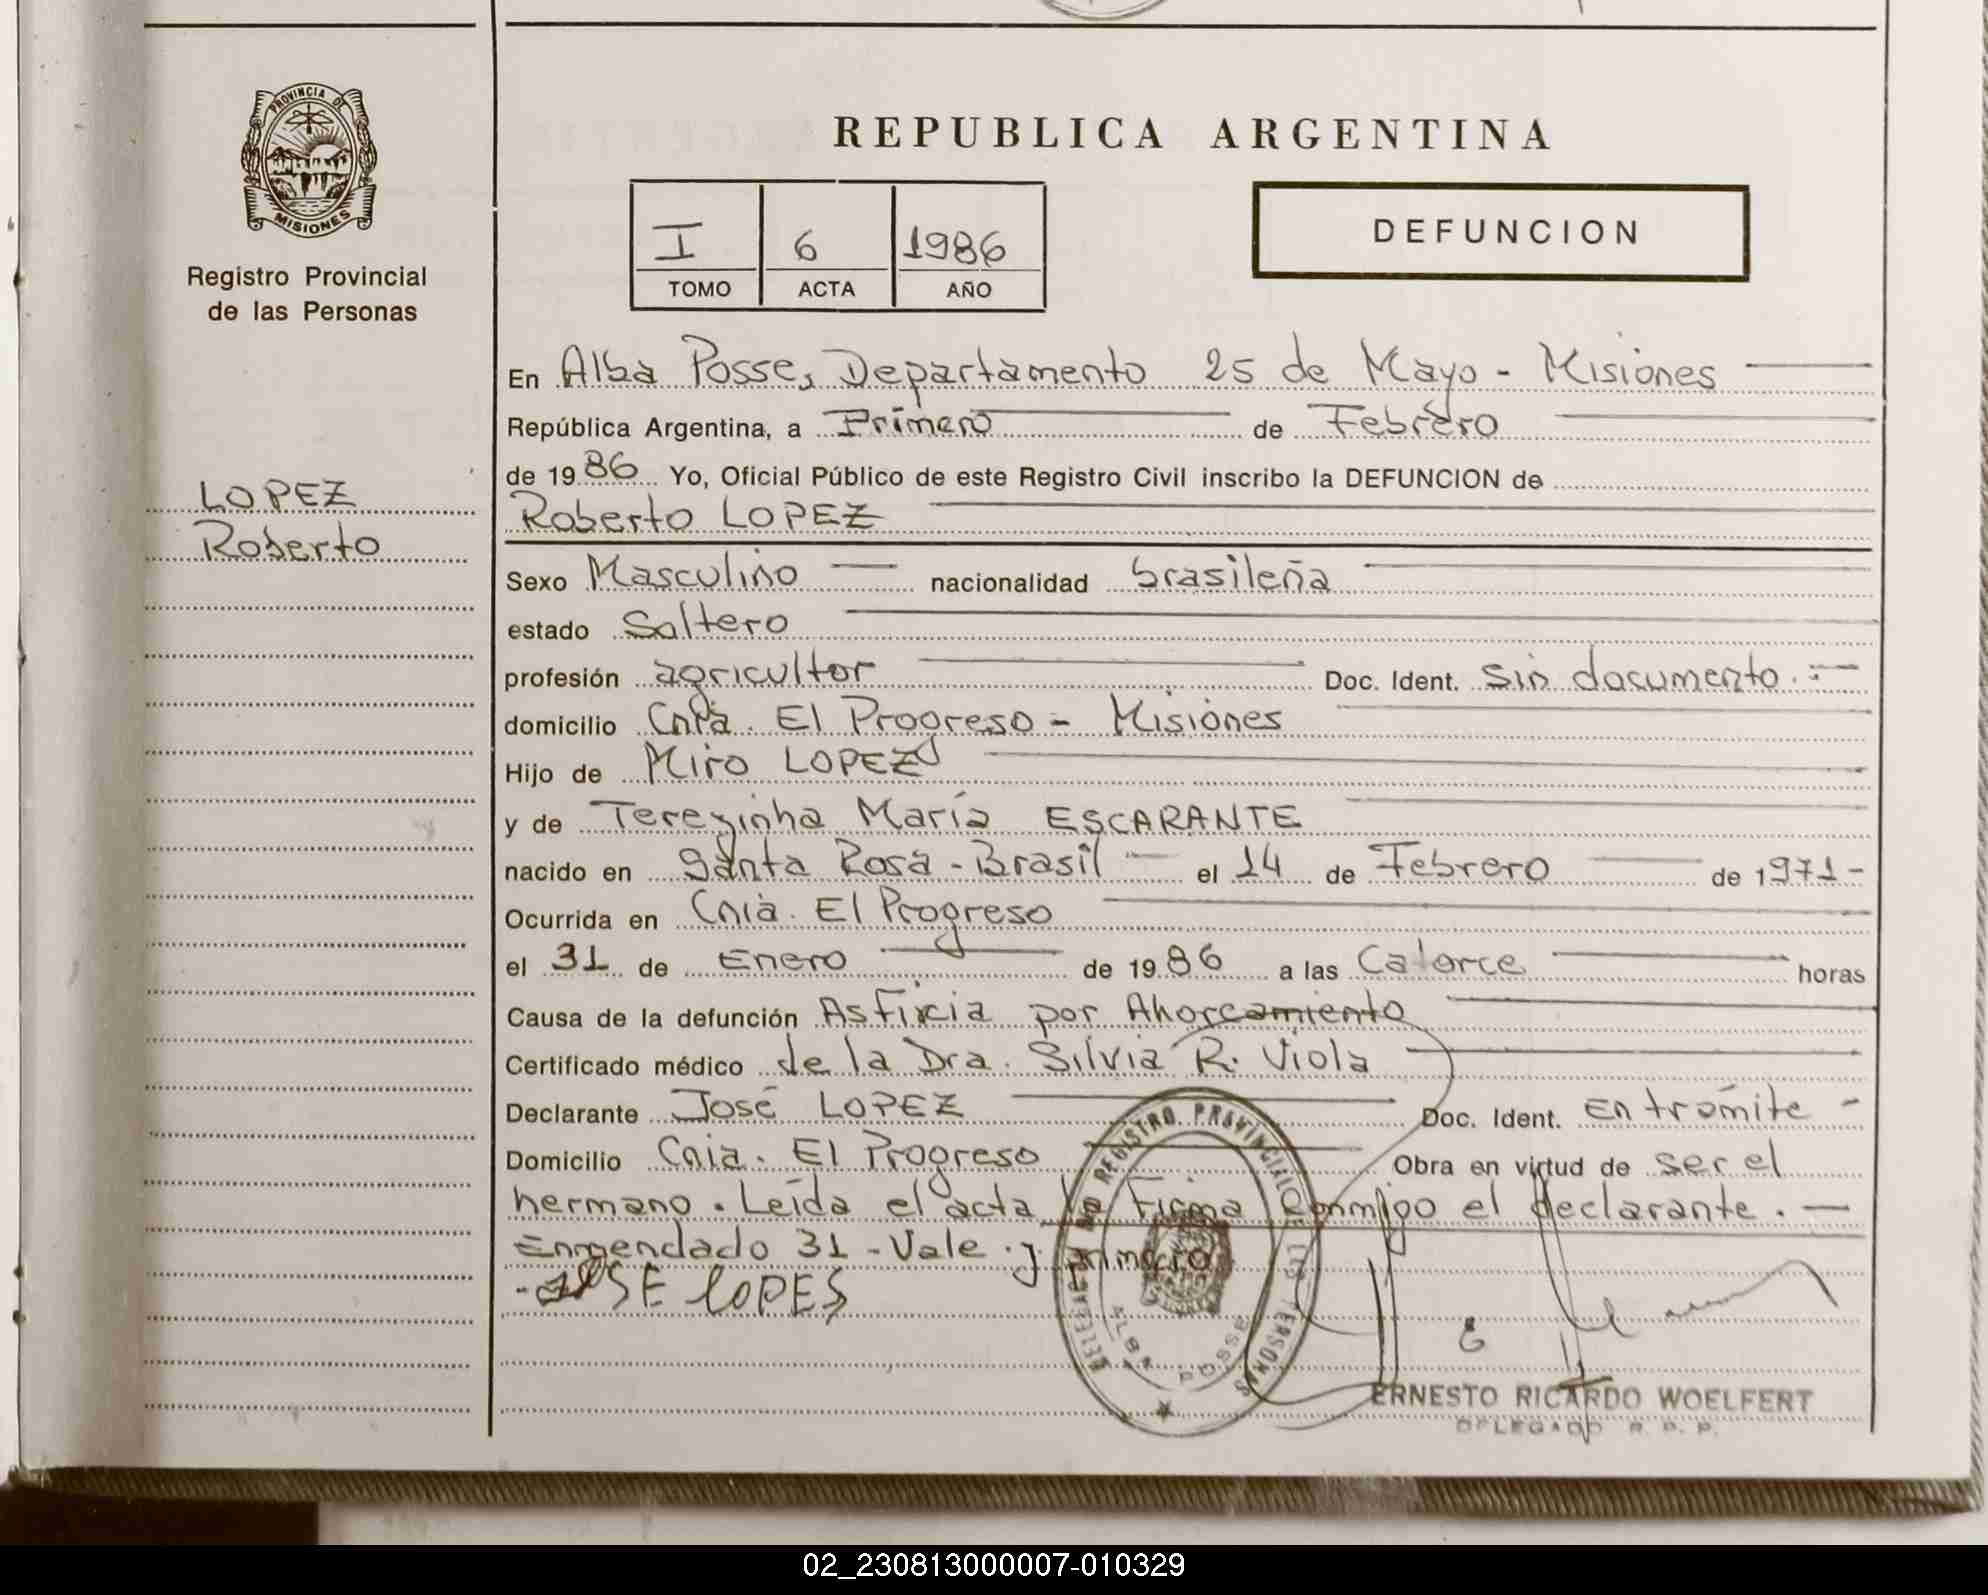 PROVINCIA DE
MISIONES
Registro Provincial
de las Personas
LOPEZ
Roberto
REPUBLICA ARGENTINA
I 6 1986
TOMO ACTA AÑO
DEFUNCION
En Alba Posse, Departamento 25 de Mayo - Misiones
República Argentina, a Primero de Febrero
de 1986 Yo, Oficial Público de este Registro Civil inscribo la DEFUNCION de
Roberto LOPEZ
Sexo Masculino nacionalidad brasileña
estado Soltero
profesión agricultor Doc. Ident. Sin documento.-
domicilio Cnia. El Progreso - Misiones
Hijo de Miro LOPEZ
y de Terezinha María ESCARANTE
nacido en Santa Rosa - Brasil el 14 de Febrero de 1971-
Ocurrida en Cnia. El Progreso
el 31 de Enero de 1986 a las Catorce horas
Causa de la defunción Asfixia por Ahorcamiento
Certificado médico de la Dra. Silvia R. Viola
Declarante José LOPEZ Doc. Ident. En trámite -
Domicilio Cnia. El Progreso Obra en virtud de ser el
hermano. Leída el acta la Firma Conmigo el declarante. -
Enmendado 31 - Vale.
JOSE LOPES
REGISTRO PROVINCIAL DE LAS PERSONAS
ALBA POSSE
ERNESTO RICARDO WOELFERT
DELEGADO R. P. P.
02_230813000007-010329